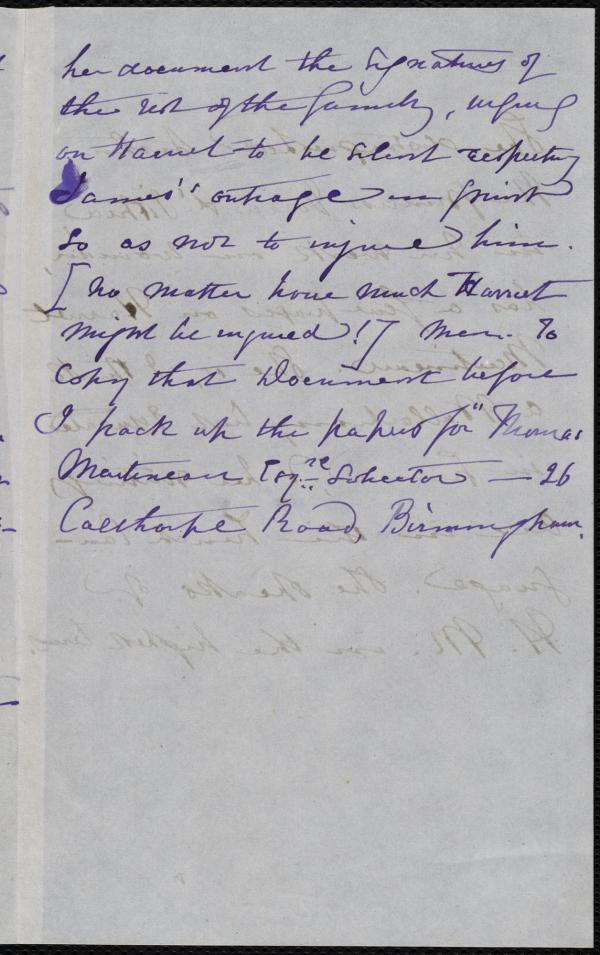 her document the signatures of
the rest of the family, urging
on Harriet to be silent respecting
James's outrage in print
so as not to injure him.
[no matter how much Harriet
might be injured!] Mem. To
copy that Document before
I pack up the papers for "Thomas
Martineau Esqre Solicitor — 26
Calthorpe Road, Birmingham.